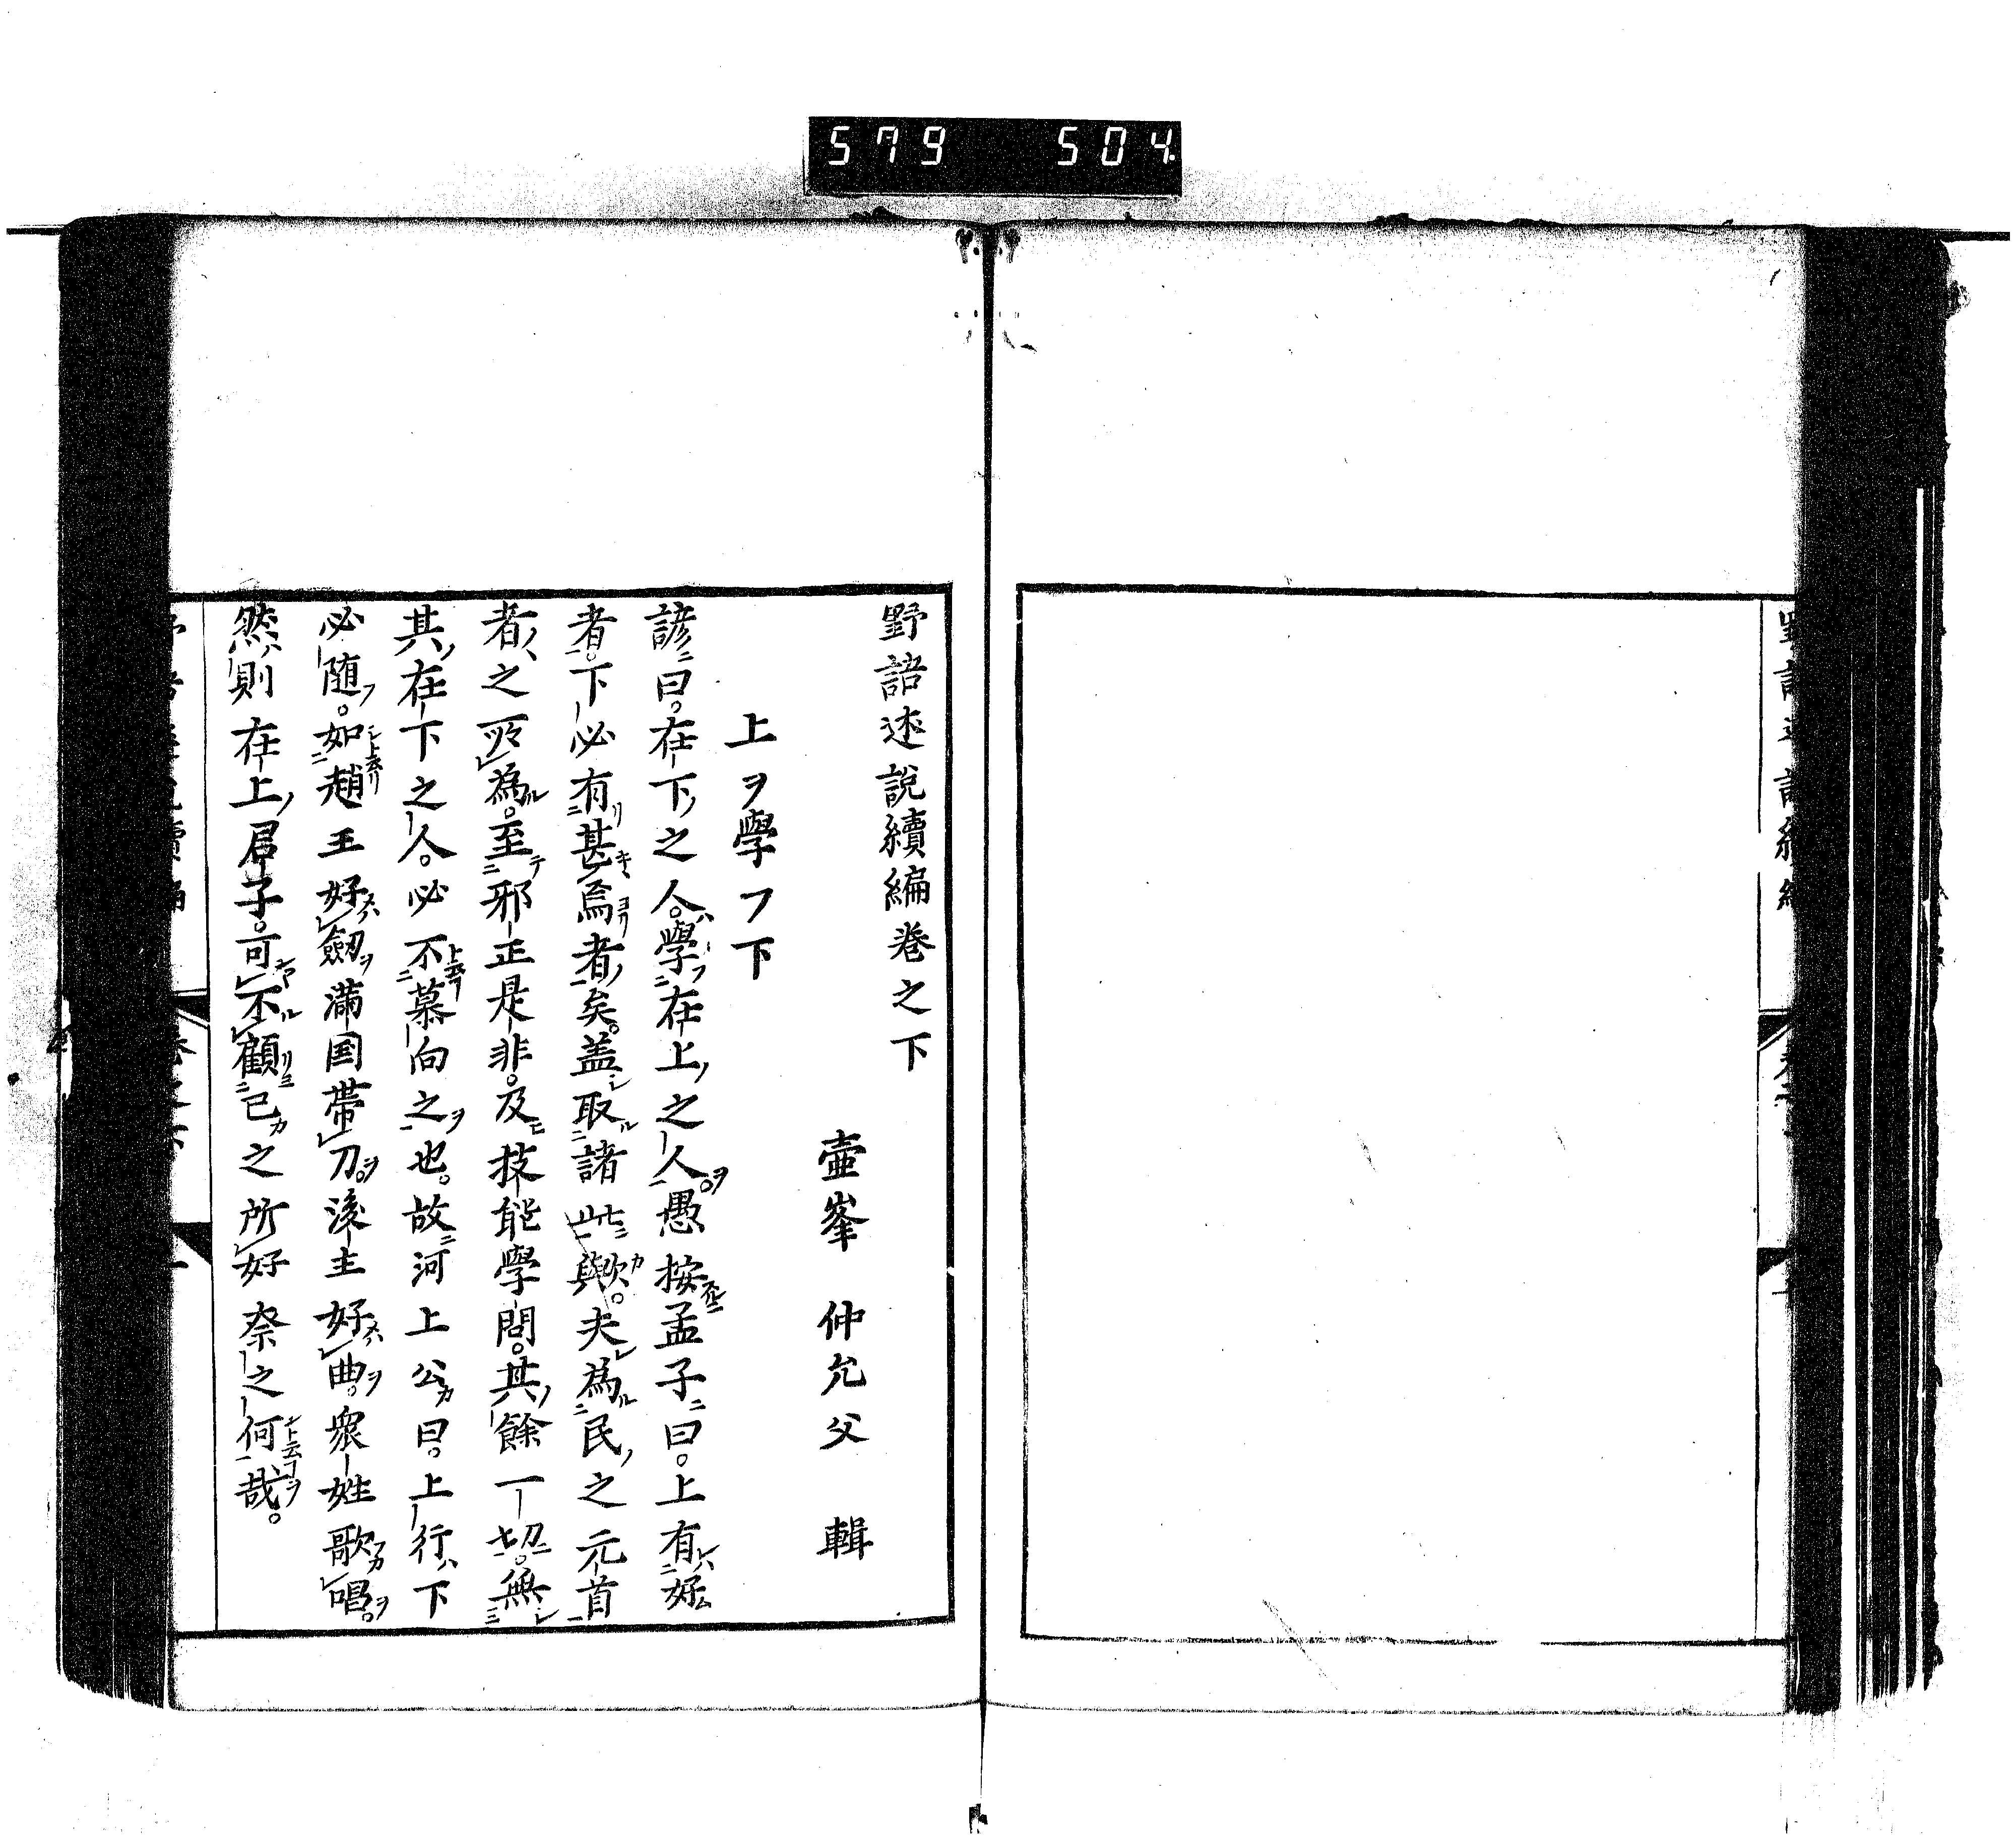 579 504
野語述說續編卷之下
壷峯 仲允父 輯
上ヲ學フ下
諺ニ曰。在下ノ之人。學在上ノ之人。愚按孟子ニ曰。上有好
者。下必有甚焉者矣。盖取諸此歟。夫為民ノ之元首
者ノ之所為。至邪正是非。及技能學問。其餘一切。無
其在下之人。必不慕向之也。故河上公曰。上行下
必随。如趙王好劔満国帶刀。後主好曲。衆姓歌唱。
然則在上ノ君子。可不顧己之所好奈之何哉。